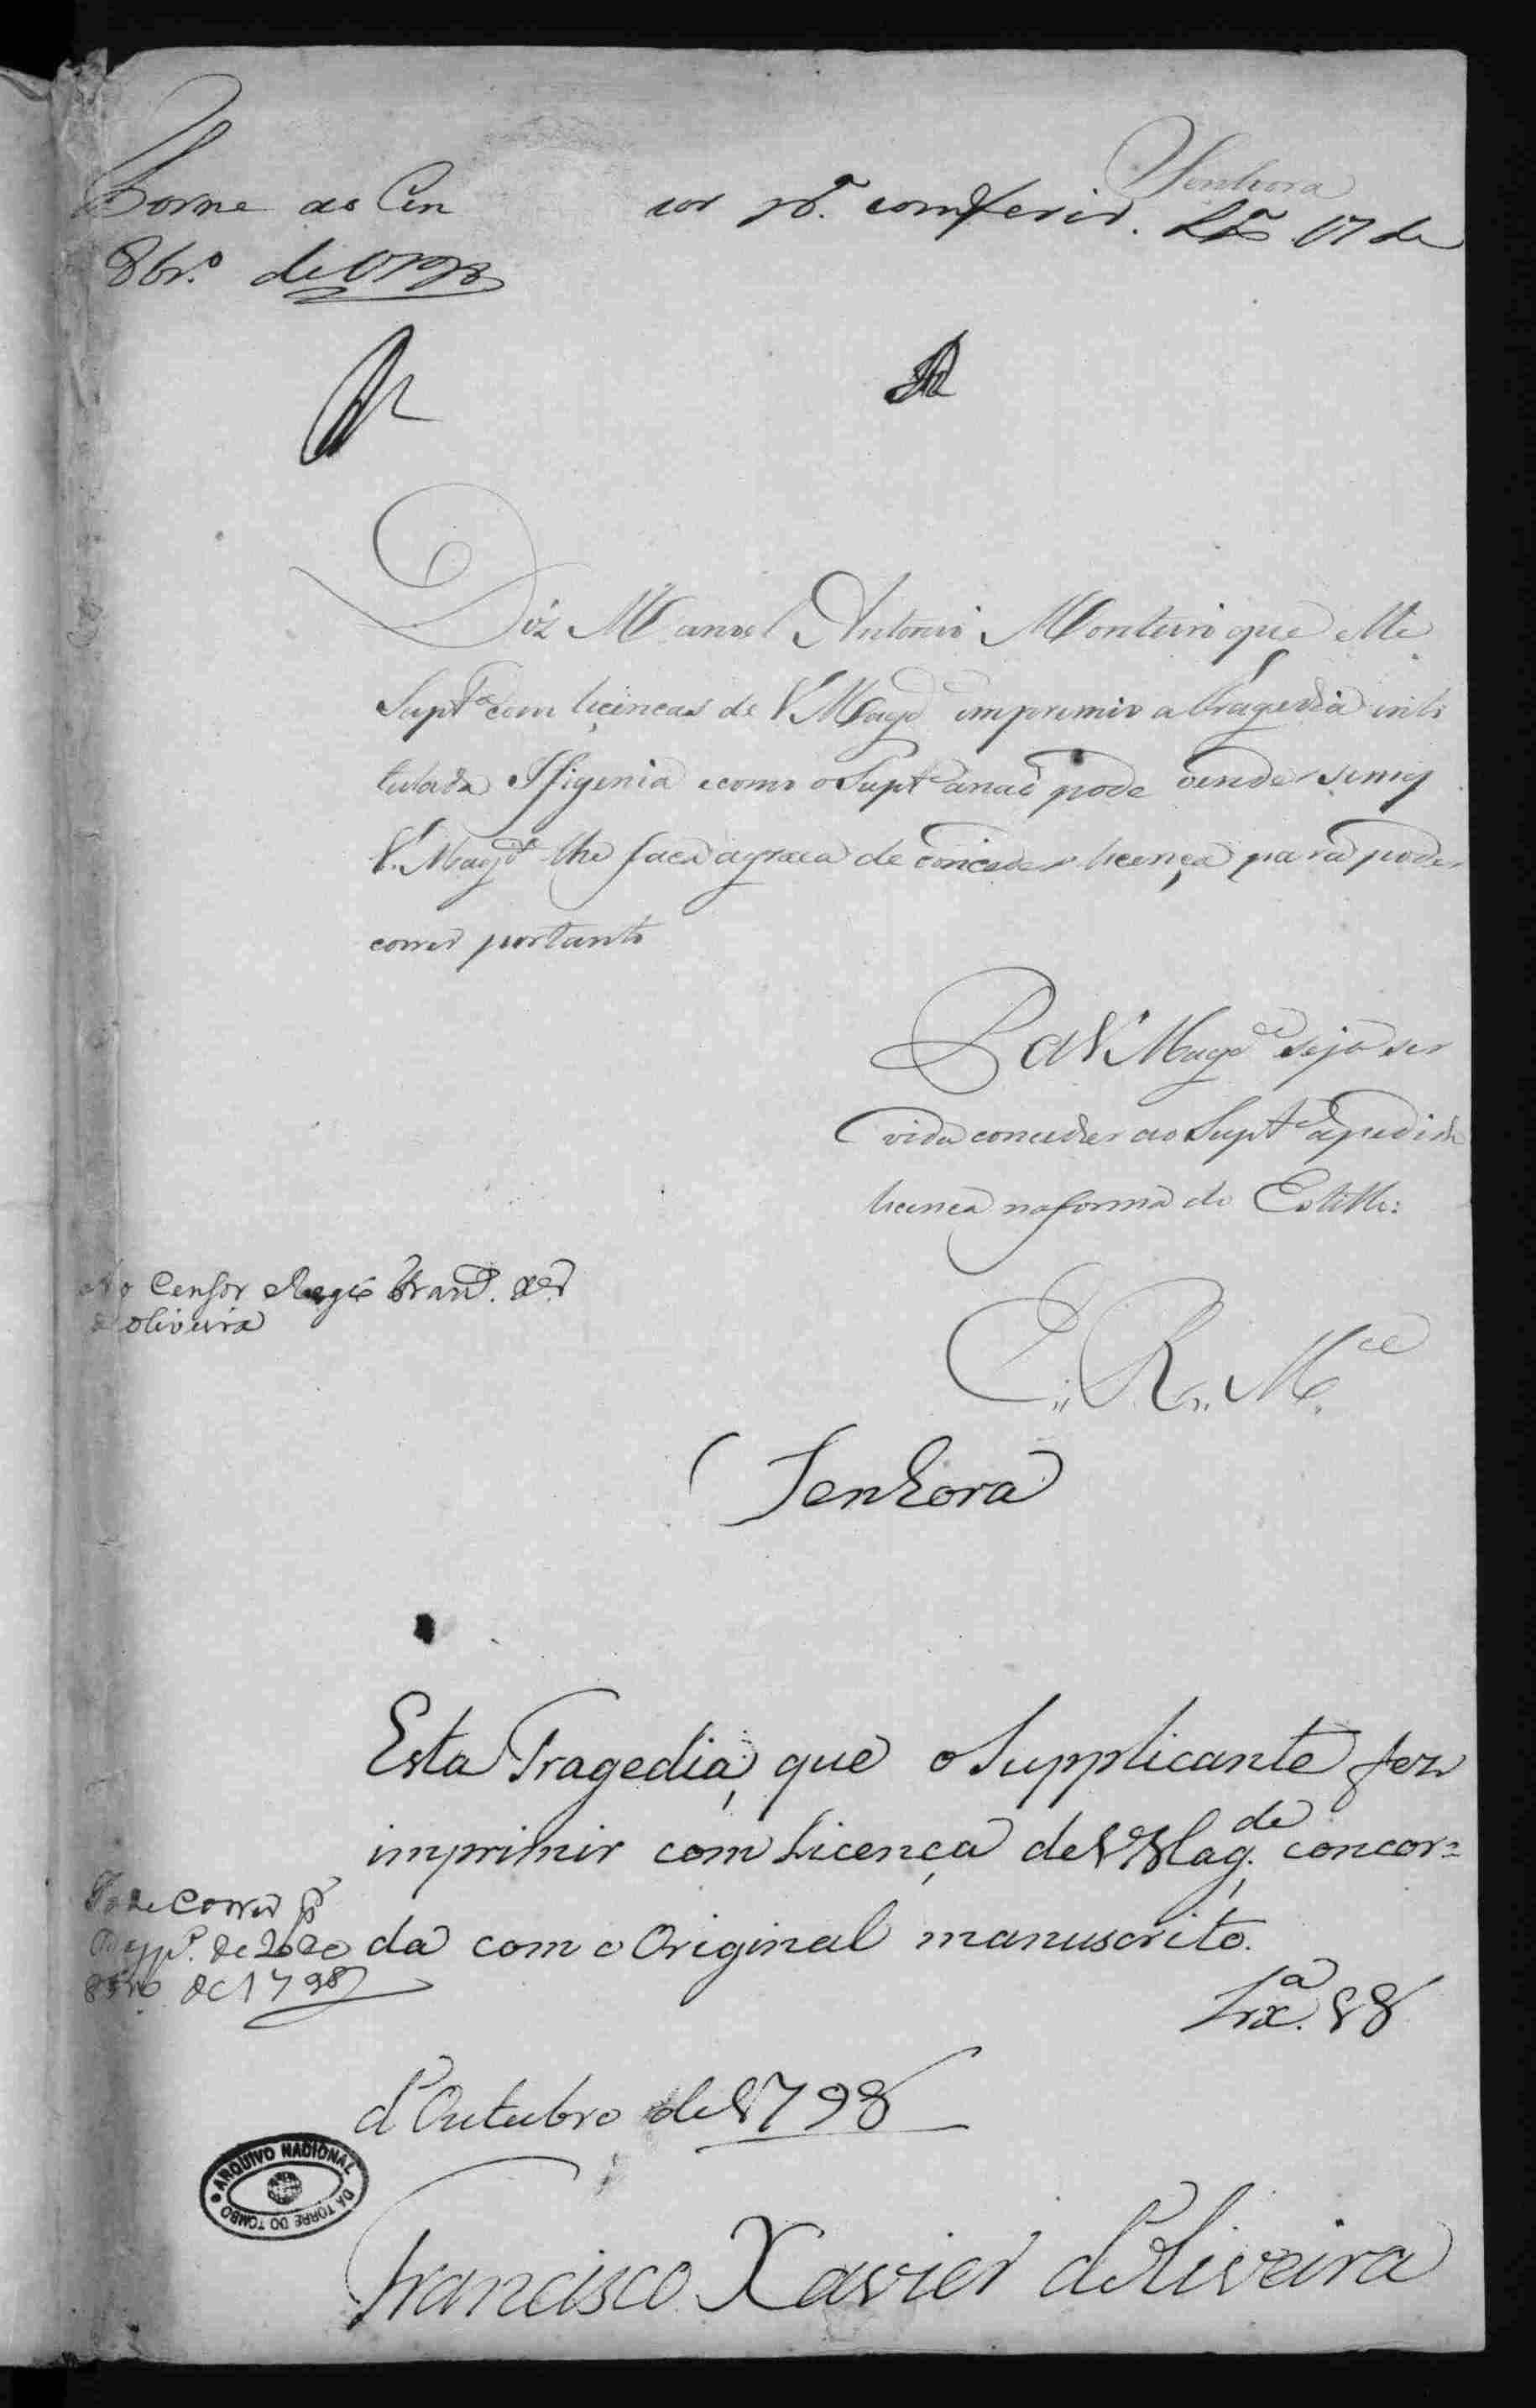 Senhora
Torne ao Cen sor pª. comferir. Lxª 17 de
8br.º de 1798
Diz Manoel Antonio Monteiro que elle
Suptᵉ com liçincas de V Magᵈᵉ imprimio a tragedia inti
tulada Ifigenia ecomo o Suptᵉ anaõ pode vender semq
V. Magᵈᵉ lhe faca agraca de conceder licença para poder
correr portanto
P a V Magᵈᵉ seja ser
vida conceder ao Suptᵉ apedida
licenca naforma do Estillo:
E,, R,, Mᶜᵉ
Ao Censor Regio Franᶜᵒ. Xᵉʳ
de Oliveira
Senhora
Esta Tragedia, que o Supplicante fez
imprimir com Licença de V Mag.ᵈᵉ concor=
da com o Original manuscrito.
Lxª. 18
d'Outubro de 1798
Francisco Xavier d'Oliveira
Pode Correr
de 1798
ARQUIVO NACIONAL DA TORRE DO TOMBO